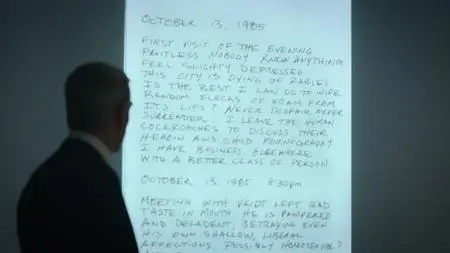 OCTOBER 13, 1985
FIRST VISIT OF THE EVENING
FRUITLESS NOBODY KNEW ANYTHING
FEEL SLIGHTLY DEPRESSED
THIS CITY IS DYING OF RABIES
IS THE BEST I CAN DO TO WIPE
RANDOM FLECKS OF FOAM FROM
ITS LIPS? NEVER DESPAIR NEVER
SURRENDER I LEAVE THE HUMAN
COCKROACHES TO DISCUSS THEIR
HEROIN AND CHILD PORNOGRAPHY
I HAVE BUSINESS ELSEWHERE
WITH A BETTER CLASS OF PERSON.
OCTOBER 13, 1985 8:30PM
MEETING WITH VEIDT LEFT BAD
TASTE IN MOUTH HE IS PAMPERED
AND DECADENT, BETRAYING EVEN
HIS OWN SHALLOW, LIBERAL
AFFECTIONS. POSSIBLY HOMOSEXUAL?